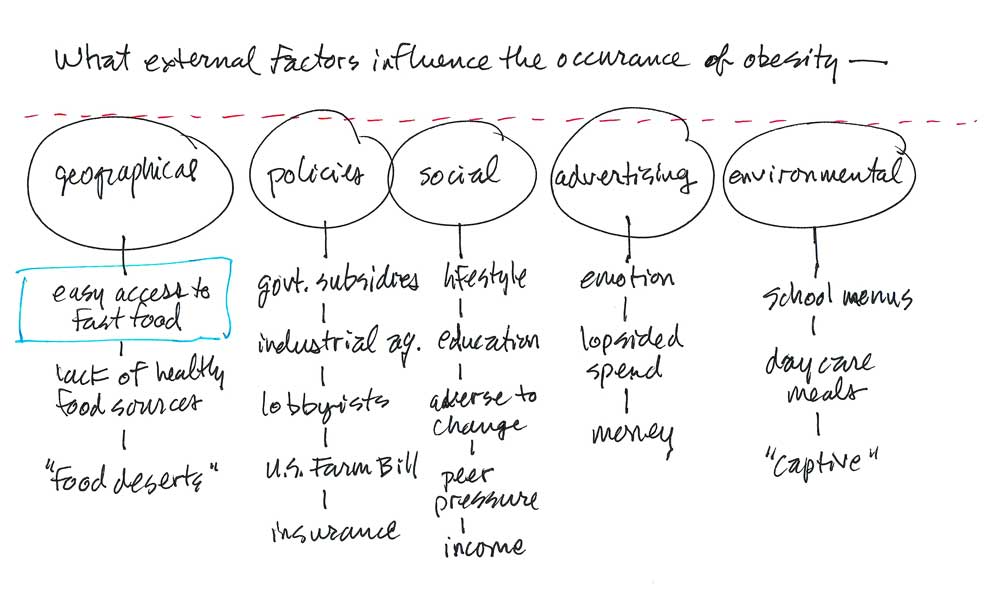 What external factors influence the occurance of obesity —
geographical
easy access to
fast food
lack of healthy
food sources
"food deserts"
policies
govt. subsidies
industrial ag.
lobbyists
U.S. Farm Bill
insurance
social
lifestyle
education
adverse to
change
peer
pressure
income
advertizing
emotion
lopsided
spend
money
environmental
school menus
day care
meals
"captive"